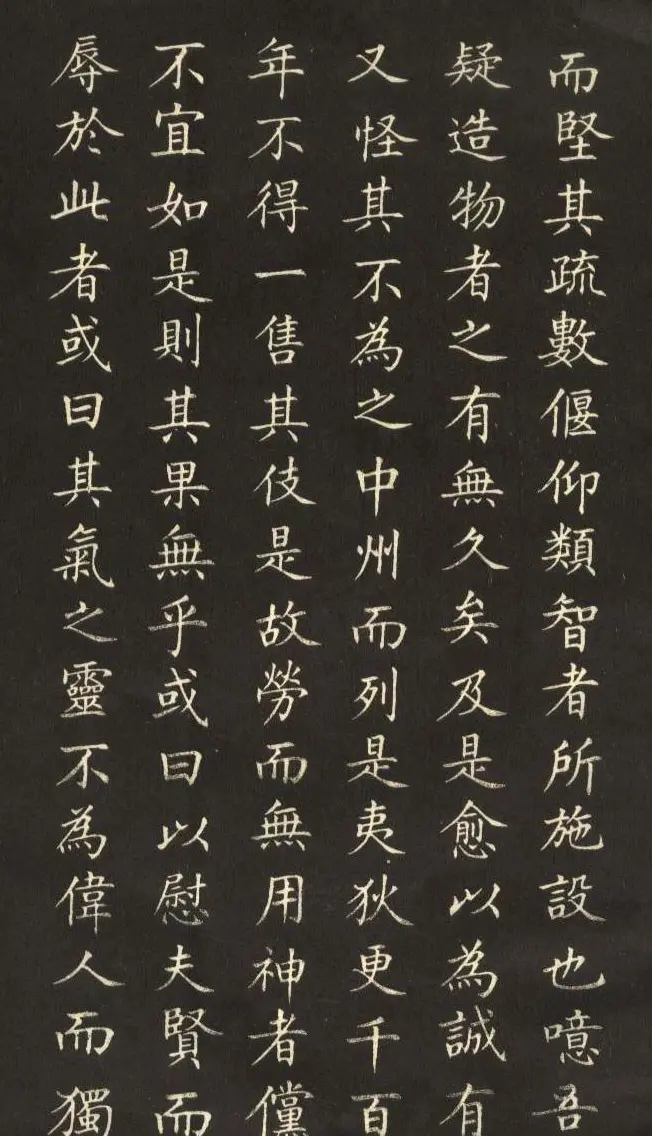 而堅其疏數偃仰類智者所施設也噫吾
疑造物者之有無久矣及是愈以為誠有
又怪其不為之中州而列是夷狄更千百
年不得一售其伎是故勞而無用神者儻
不宜如是則其果無乎或曰以慰夫賢而
辱於此者或曰其氣之靈不為偉人而獨